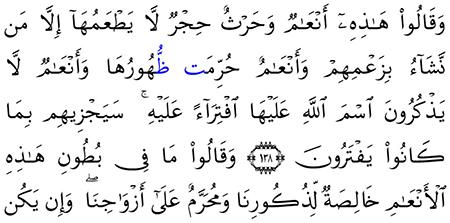 وَقَالُوا۟ هَـٰذِهِۦٓ أَنْعَـٰمٌ وَحَرْثٌ حِجْرٌ لَّا يَطْعَمُهَآ إِلَّا مَن
نَّشَآءُ بِزَعْمِهِمْ وَأَنْعَـٰمٌ حُرِّمَت ظُّهُورُهَا وَأَنْعَـٰمٌ لَّا
يَذْكُرُونَ ٱسْمَ ٱللَّهِ عَلَيْهَا ٱفْتِرَآءً عَلَيْهِ ۚ سَيَجْزِيهِم بِمَا
كَانُوا۟ يَفْتَرُونَ ﴿١٣٨﴾ وَقَالُوا۟ مَا فِى بُطُونِ هَـٰذِهِ
ٱلْأَنْعَـٰمِ خَالِصَةٌ لِّذُكُورِنَا وَمُحَرَّمٌ عَلَىٰٓ أَزْوَٰجِنَا ۖ وَإِن يَكُن